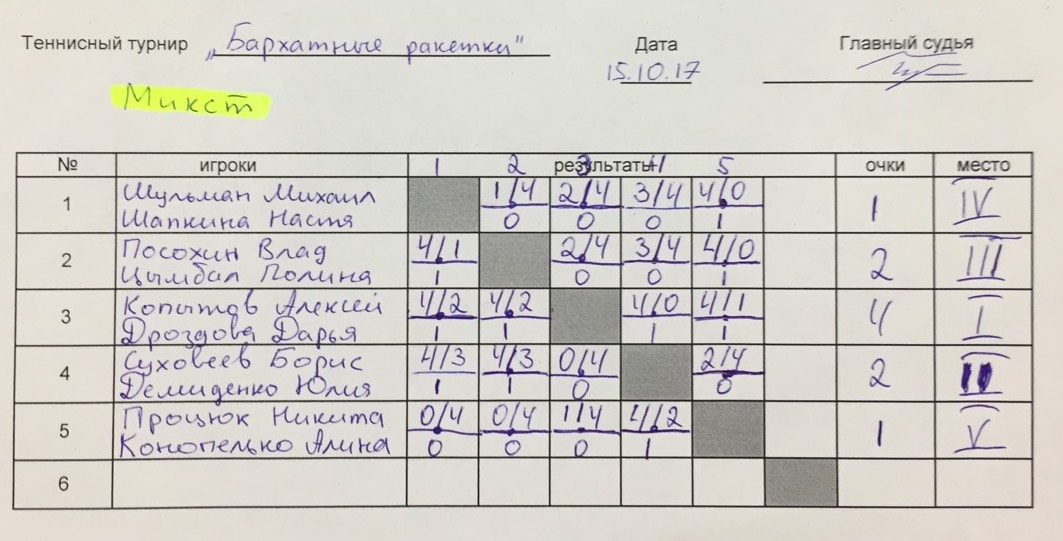 Теннисный турнир „Бархатные ракетки" Дата Главный судья
15.10.17
Микст
№ игроки 1 2 результаты 3 4 5 очки место
1 Шульман Михаил 1/4 2/4 3/4 4/0
Шапкина Настя 0 0 0 1 1 IV
2 Посохин Влад 4/1 2/4 3/4 4/0
Цымбал Полина 1 0 0 1 2 III
3 Копытов Алексей 4/2 4/2 4/0 4/1
Дроздова Дарья 1 1 1 1 4 I
4 Суховеев Борис 4/3 4/3 0/4 2/4
Демиденко Юлия 1 1 0 0 2 II
5 Процюк Никита 0/4 0/4 1/4 4/2
Конопелько Алина 0 0 0 1 1 V
6